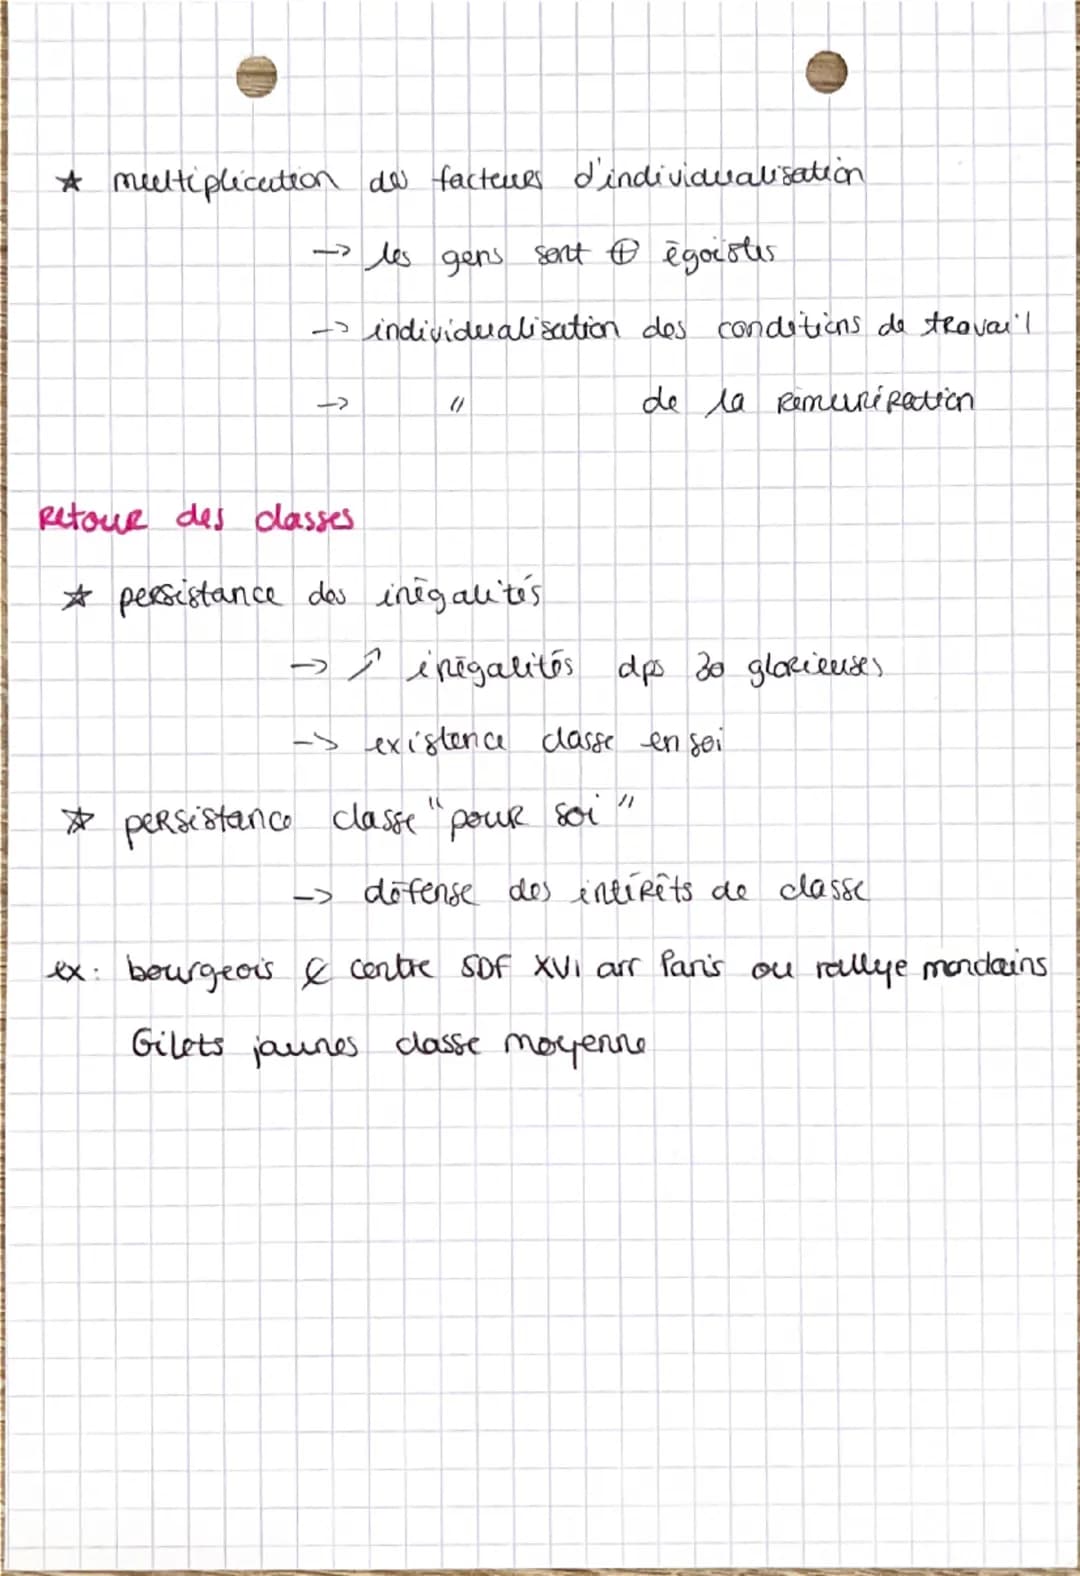 ☆ multiplication des facteurs d'individualisation
-> les gens sont ⊕ égoistes
-> individualisation des conditions de travail
-> " de la rémunération
Retour des classes
☆ persistance des inégalités
-> ↗ inégalités dps 30 glorieuses
-> existence classe en soi
☆ persistance classe "pour soi"
-> défense des intérêts de classe
ex: bourgeois & contre SDF XVI arr Paris ou rallye mondains
Gilets jaunes classe moyenne